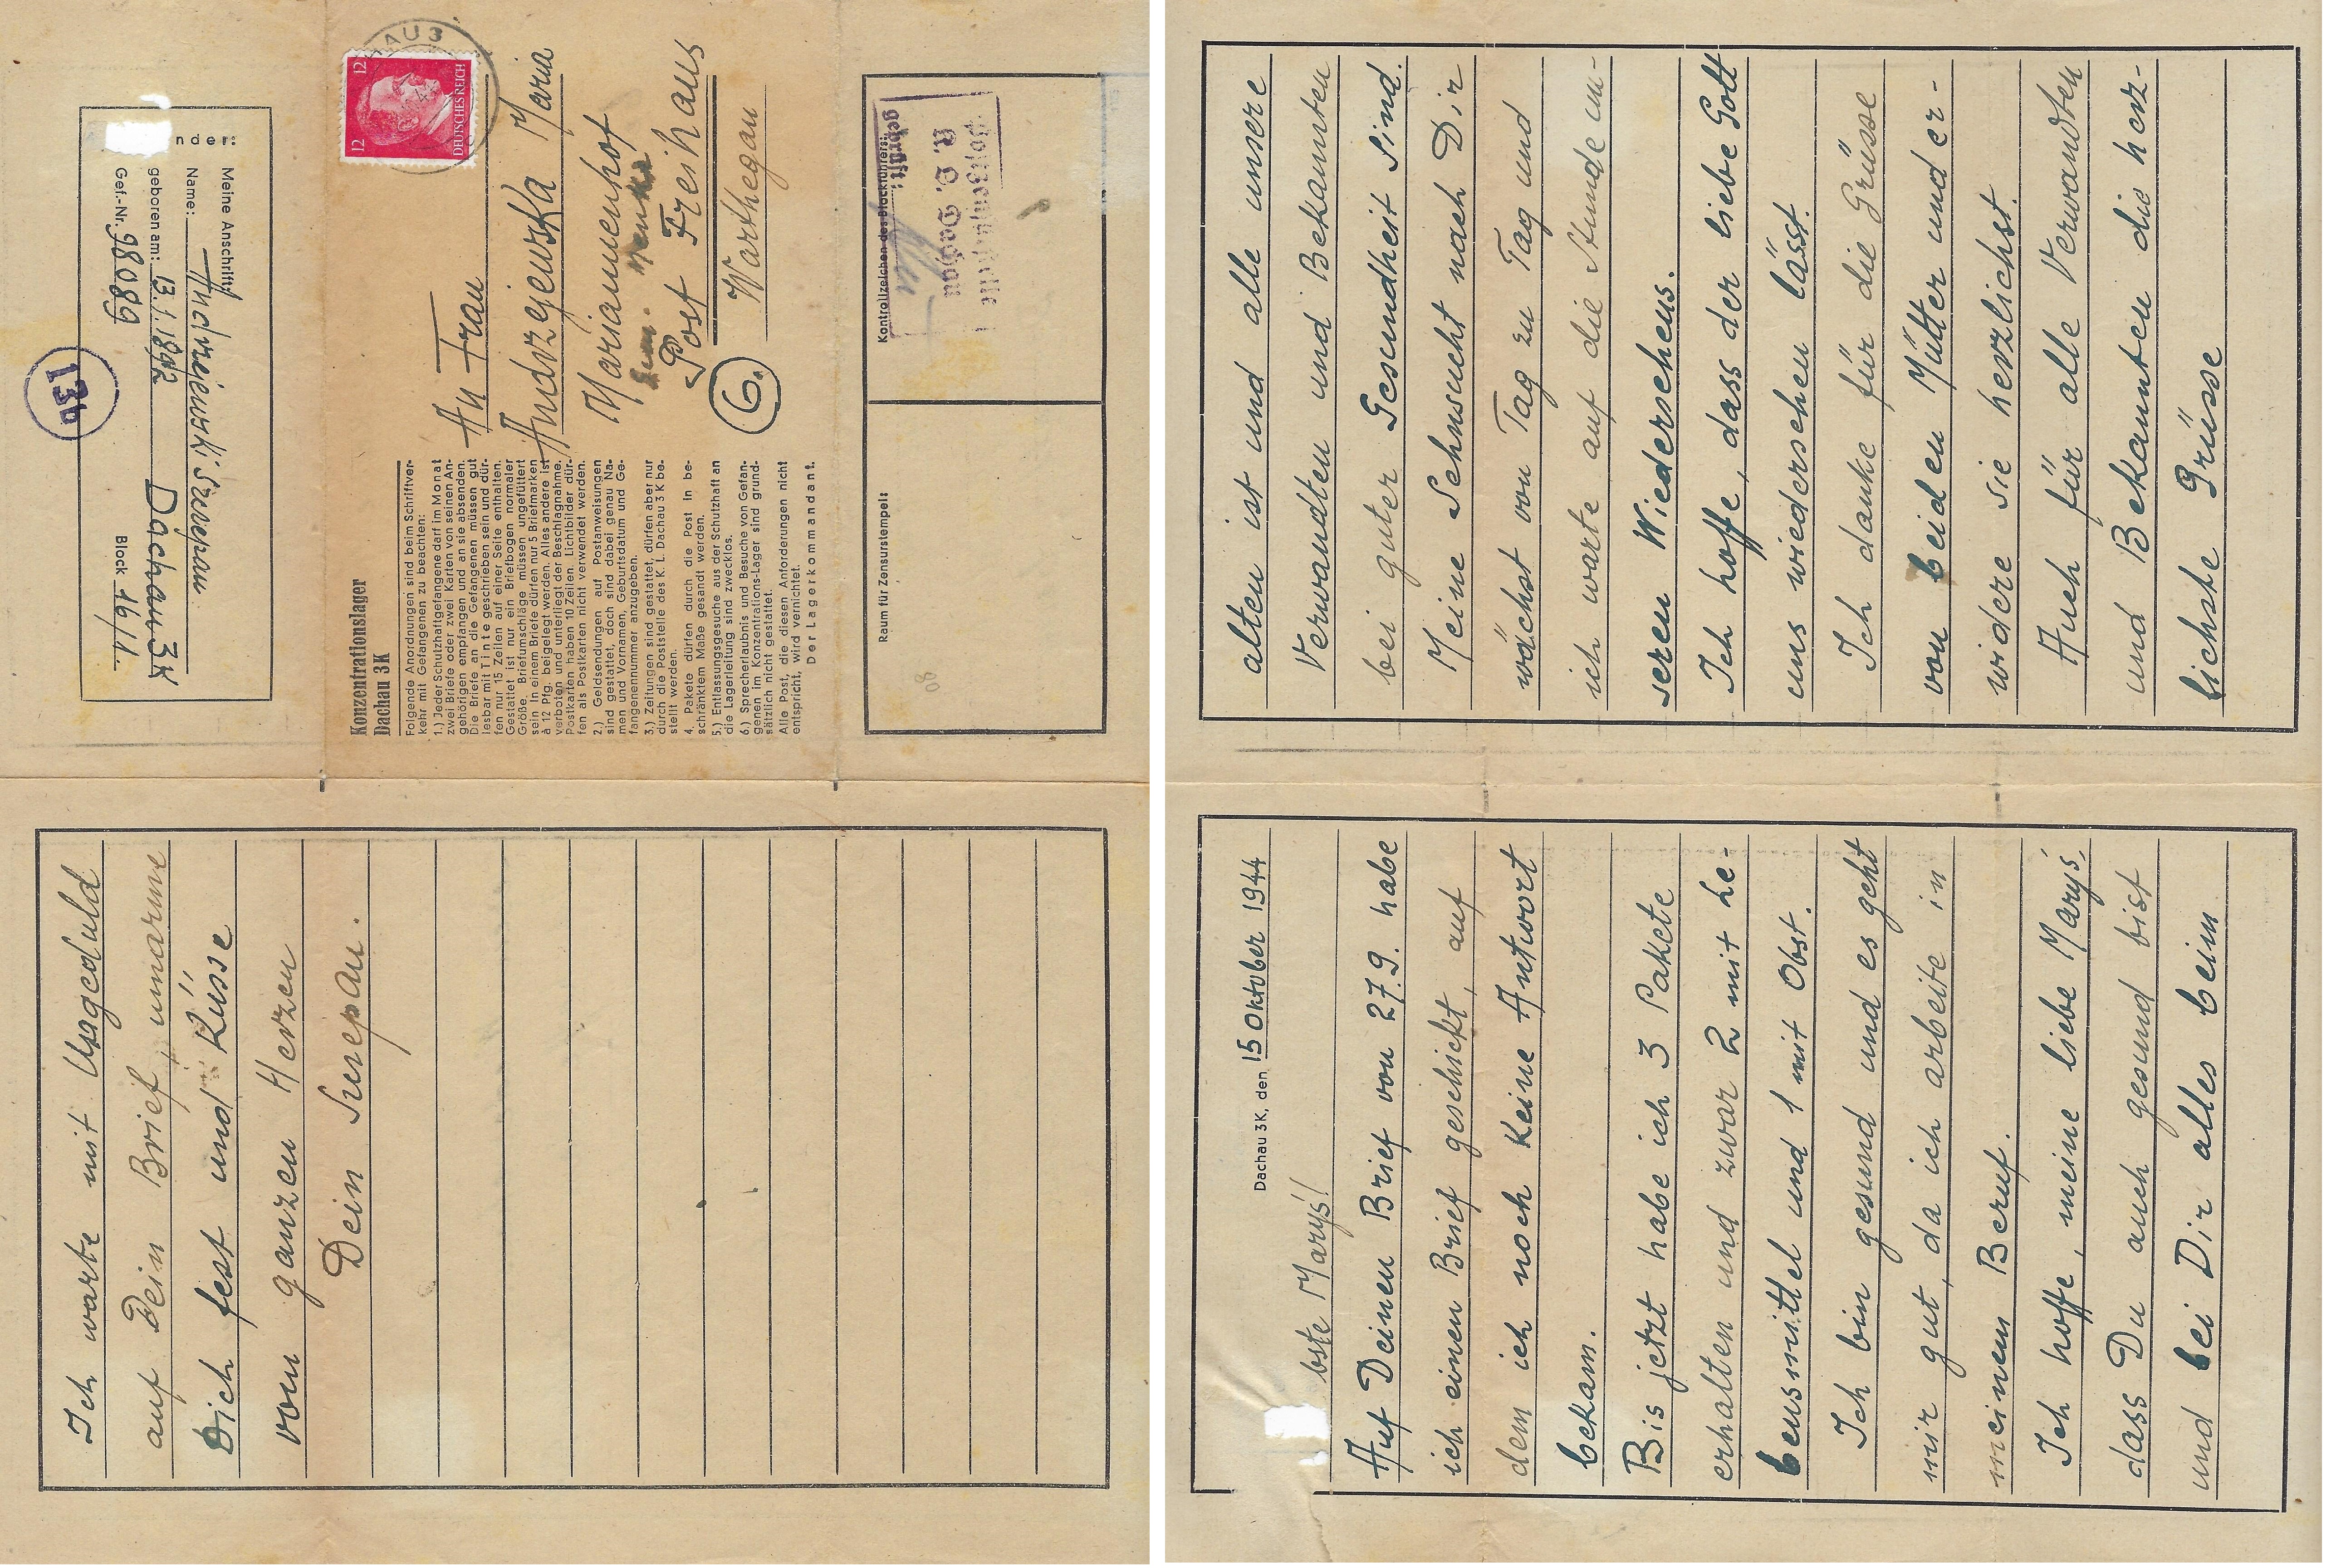 nder:
Meine Anschrift
Name: Andrzejewski Szczepan
geboren am: 13.1.1892
Gef.-Nr. 98089
Dachau 3K
Block 16/1.
13b
AU 3
12 12
DEUTSCHES REICH
An Frau
Andrzejewska Maria
Mariamenhof
Post Freihaus
Warthegau
6.
Konzentrationslager
Dachau 3 K
Folgende Anordnungen sind beim Schriftver-
kehr mit Gefangenen zu beachten:
1.) Jeder Schutzhaftgefangene darf im Monat
zwei Briefe oder zwei Karten von seinen An-
gehörigen empfangen und an sie absenden.
Die Briefe an die Gefangenen müssen gut
lesbar mit Tinte geschrieben sein und dür-
fen nur 15 Zeilen auf einer Seite enthalten.
Gestattet ist nur ein Briefbogen normaler
Größe. Briefumschläge müssen ungefüttert
sein. In einem Briefe dürfen nur 5 Briefmarken
à 12 Pfg. beigelegt werden. Alles andere ist
verboten und unterliegt der Beschlagnahme.
Postkarten haben 10 Zeilen. Lichtbilder dür-
fen als Postkarten nicht verwendet werden.
2.) Geldsendungen auf Postanweisungen
sind gestattet, doch sind dabei genau Na-
men und Vornamen, Geburtsdatum und Ge-
fangenennummer anzugeben.
3.) Zeitungen sind gestattet, dürfen aber nur
durch die Poststelle des K. L. Dachau 3 K be-
stellt werden.
4. Pakete dürfen durch die Post in be-
schränktem Maße gesandt werden.
5.) Entlassungsgesuche aus der Schutzhaft an
die Lagerleitung sind zwecklos.
6.) Sprecherlaubnis und Besuche von Gefan-
genen im Konzentrations-Lager sind grund-
sätzlich nicht gestattet.
Alle Post, die diesen Anforderungen nicht
entspricht, wird vernichtet.
Der Lagerkommandant.
Kontrollzeichen des Blockführers:
Postzensurstelle
K. L. Dachau
geprüft:
Raum für Zensurstempel:
Dachau 3K, den 15 Oktober 1944
bste Maryś!
Auf Deinen Brief von 27.9. habe
ich einen Brief geschickt, auf
dem ich noch keine Antwort
bekam.
Bis jetzt habe ich 3 Pakete
erhalten und zwar 2 mit Le-
bensmittel und 1 mit Obst.
Ich bin gesund und es geht
mir gut, da ich arbeite in
meinem Beruf.
Ich hoffe, meine liebe Maryś,
dass Du auch gesund bist
und bei Dir alles beim
alten ist und alle unsere
Verwandten und Bekannten
bei guter Gesundheit sind.
Meine Sehnsucht nach Dir
wächst von Tag zu Tag und
ich warte auf die Stunde un-
seren Wiedersehens.
Ich hoffe, dass der liebe Gott
uns wiedersehen lässt.
Ich danke für die Grüsse
von beiden Mütter und er-
widere sie herzlichst.
Auch für alle Verwandten
und Bekannten die herz-
lichste Grüsse
Ich warte mit Ungeduld
auf Dein Brief, umarme
Dich fest und Küsse
von ganzen Herzen
Dein Szczepan.